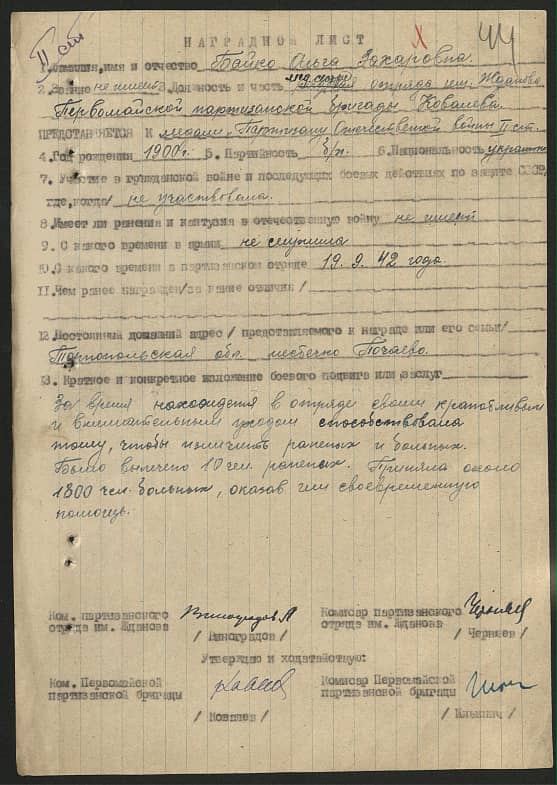 II ст
44
НАГРАДНОЙ ЛИСТ
1. Фамилия, имя и отчество Бойко Ольга Захаровна.
2. Звание не имеет. Должность и часть мед. сестра отряда им. Жданова
Первомайской партизанской бригады Ковалева.
ПРЕДСТАВЛЯЕТСЯ К медали "Партизану Отечественной войны" II ст.
4. Год рождения 1900 г. 5. Партийность б/п. 6. Национальность украинка
7. Участие в гражданской войне и последующих боевых действиях по защите СССР,
где, когда/ не участвовала.
8. Имеет ли ранения и контузия в отечественную войну не имеет
9. С какого времени в армии не служила
10. С какого времени в партизанском отряде 19.9.42 года.
11. Чем ранее награжден/за какие отличия/
12. Постоянный домашний адрес / представляемого к награде или его семьи/
Тарнопольская обл. местечко Почаево.
13. Краткое и конкретное изложение боевого подвига или заслуг
За время нахождения в отряде своим кропотливым
и внимательным уходом способствовала
тому, чтобы излечить раненых и больных.
Было вылечено 10 чел. раненых. Приняла около
1800 чел. больных, оказав им своевременную
помощь.
Ком. партизанского
отряда им. Жданова
/ Виноградов /
Комисар партизанского
отряда им. Жданова
/ Черняев /
Утверждаю и ходатайствую:
Ком. Первомайской
партизанской бригады
/ Ковалев /
Комисар Первомайской
партизанской бригады
/ Илькевич /